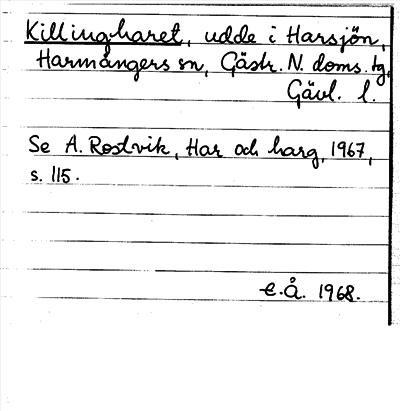 Killingharet, udde i Harsjön,
Harmångers sn, Gästr. N. doms. tg,
Gävl. l.
Se A. Rostvik, Har och harg, 1967,
s. 115.
E.Å. 1968.